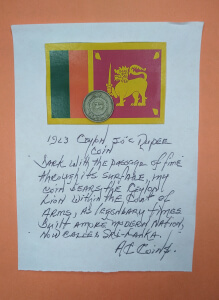 1963 Ceylon Rupee
Coin
Dark with the passage of time
through its surface, my
coin bears the Ceylon
Lion within the Coat of
Arms, as legendary times
built a more modern nation,
now called Sri-Lanka.